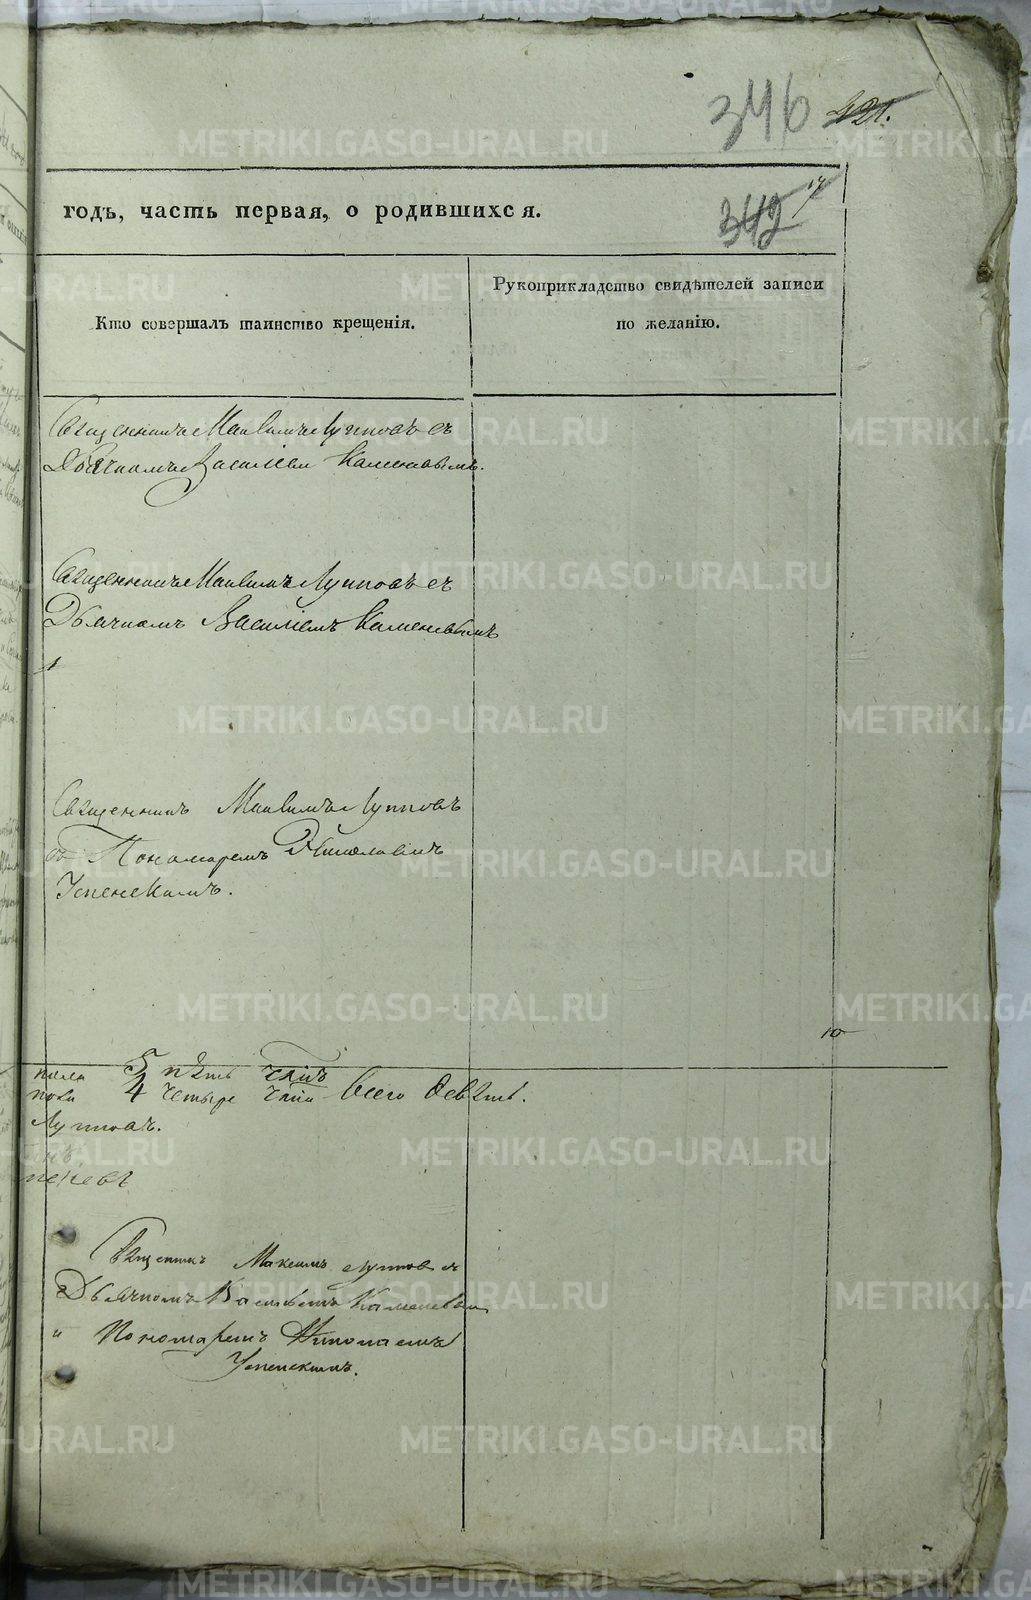 346 421.
годъ, часть первая, о родившихся. 342
Кто совершалъ таинство крещенія.
Рукоприкладство свидѣтелей записи
по желанію.
Священникъ Максимъ Лупповъ съ
Дьячкомъ Василіем Каменевымъ.
Священникъ Максимъ Лупповъ съ
Дьячкомъ Василіемъ Каменевымъ
Священникъ Максимъ Лупповъ
съ Пономаремъ Николаемъ
Успенскимъ.
10
пола 5 пять
пола 4 четыре Всего девять.
Лупповъ.
Священникъ Максимъ Луповъ съ
Дьячкомъ Васильемъ Каменевым
и Пономаремъ Николаемъ
Успенскимъ.
METRIKI.GASO-URAL.RU